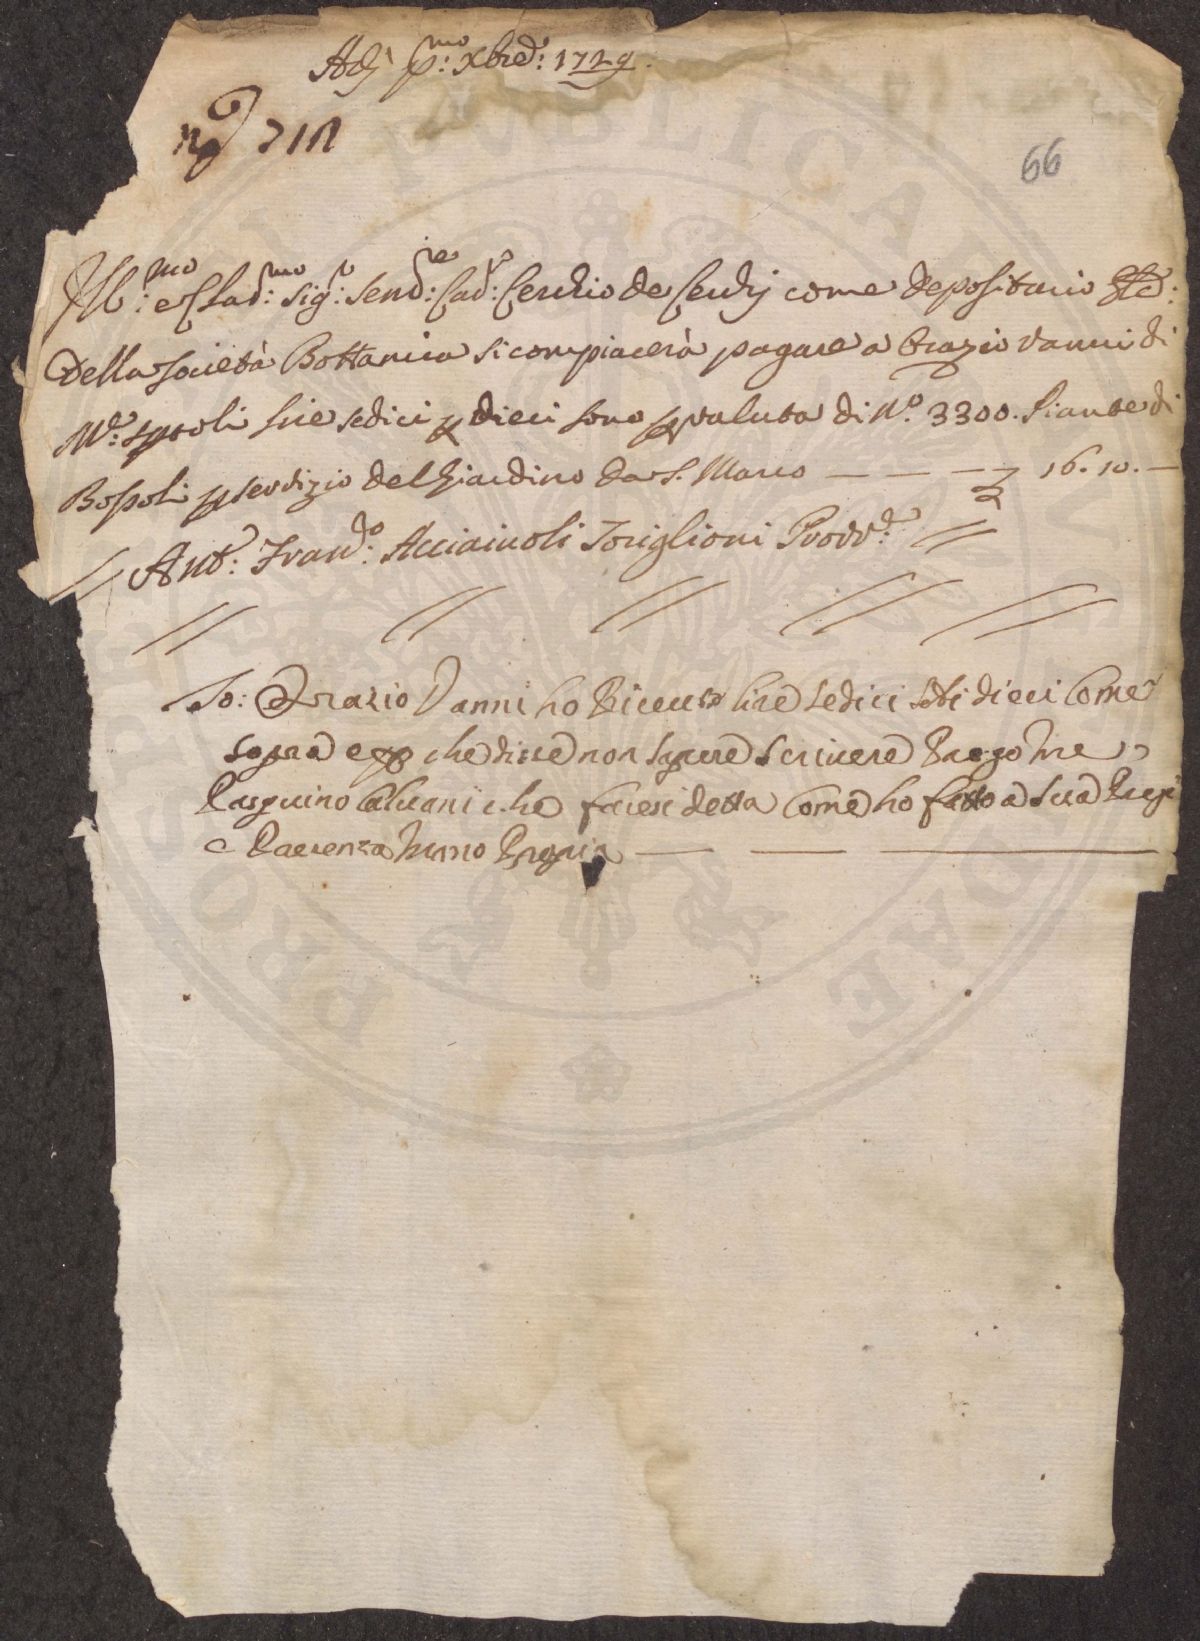 Adj p.mo Xbre: 1729
66
Ill:mo e Clar:mo Sig:r Sen:re Cav:r Cerchio de Cerchj come depositario
della Società Bottanica si compiacerà pagare a Orazio Vanni di
lire sedici e dieci sono per valuta di N.o 3300. Piante di
Bossoli per servizio del Giardino da S. Marco — — — 16.10.—
Ant: Fran:co Acciaiuoli Toriglioni Provv:re
Io: Orazio Vanni ho Riceuto lire sedici soldi dieci Come
sopra e che disse non sapere scriuere Prego Me
Pasquino Caluani che facesi detta Come ho fatto a sua Preg
e Presenza Mano Propria
PVBLICA